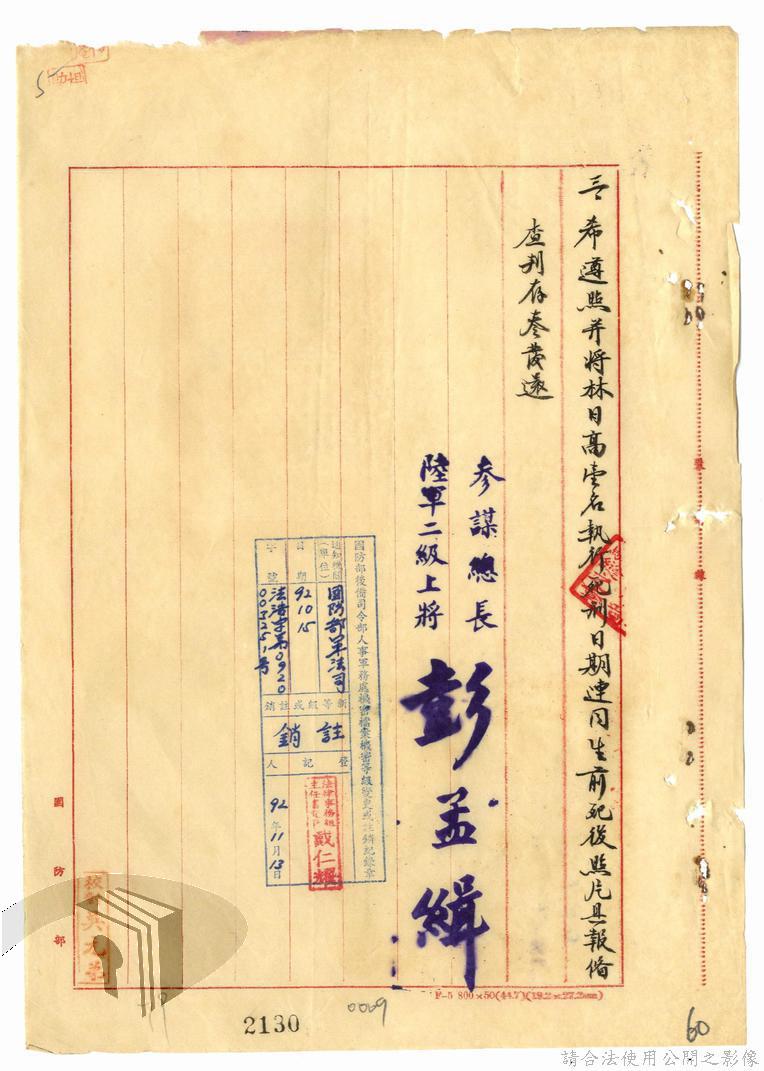 三、希遵照并將林日高壹名執行死刑日期連同生前死後照片具報備
查判存卷發還
參謀總長
陸軍二級上將
彭孟緝
國防部後備司令部人事軍務處機密檔案機密等級變更或註銷紀錄章
通知機關(單位)
國防部軍法司
日期
92 10 15
字號
法浩字第0920
003251号
新等級或註銷
註銷
登記人
法律事務組
主任書記官
戴仁耀
92年11月13日
國防部
F-5 800×50(44.7)(19.2×27.2mm)
2130
0009
60
請合法使用公開之影像